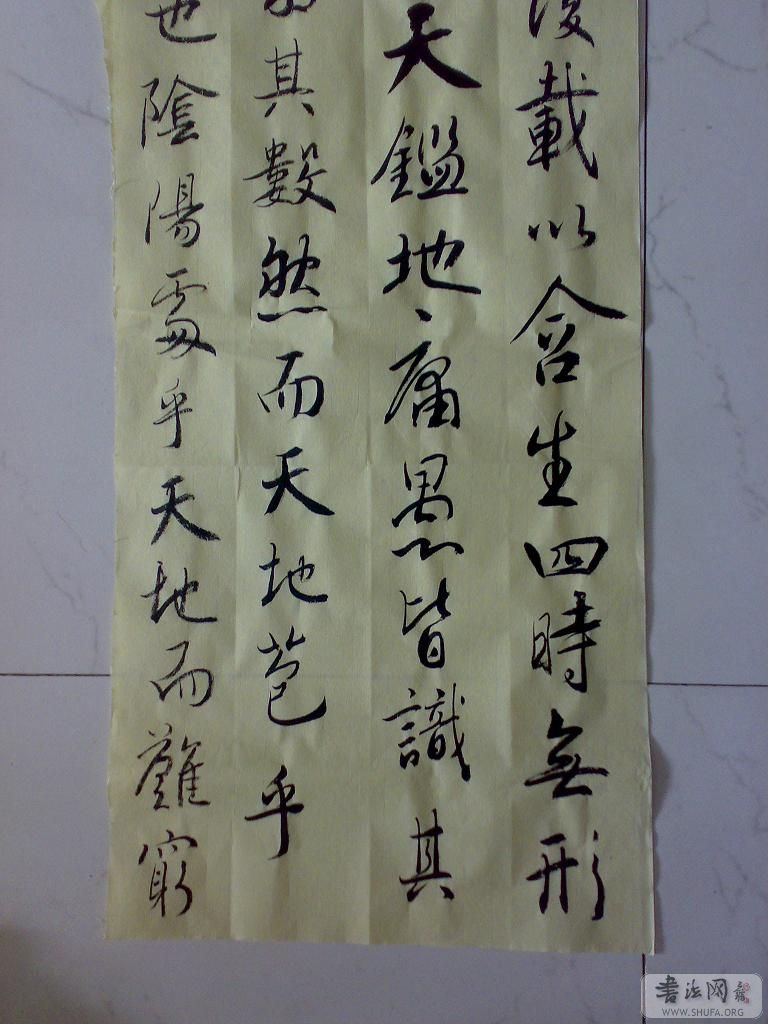 載以含生四時無形
天鑑地庸愚皆識其
其數然而天地苞乎
也陰陽處乎天地而難窮
書法网
WWW.SHUFA.ORG